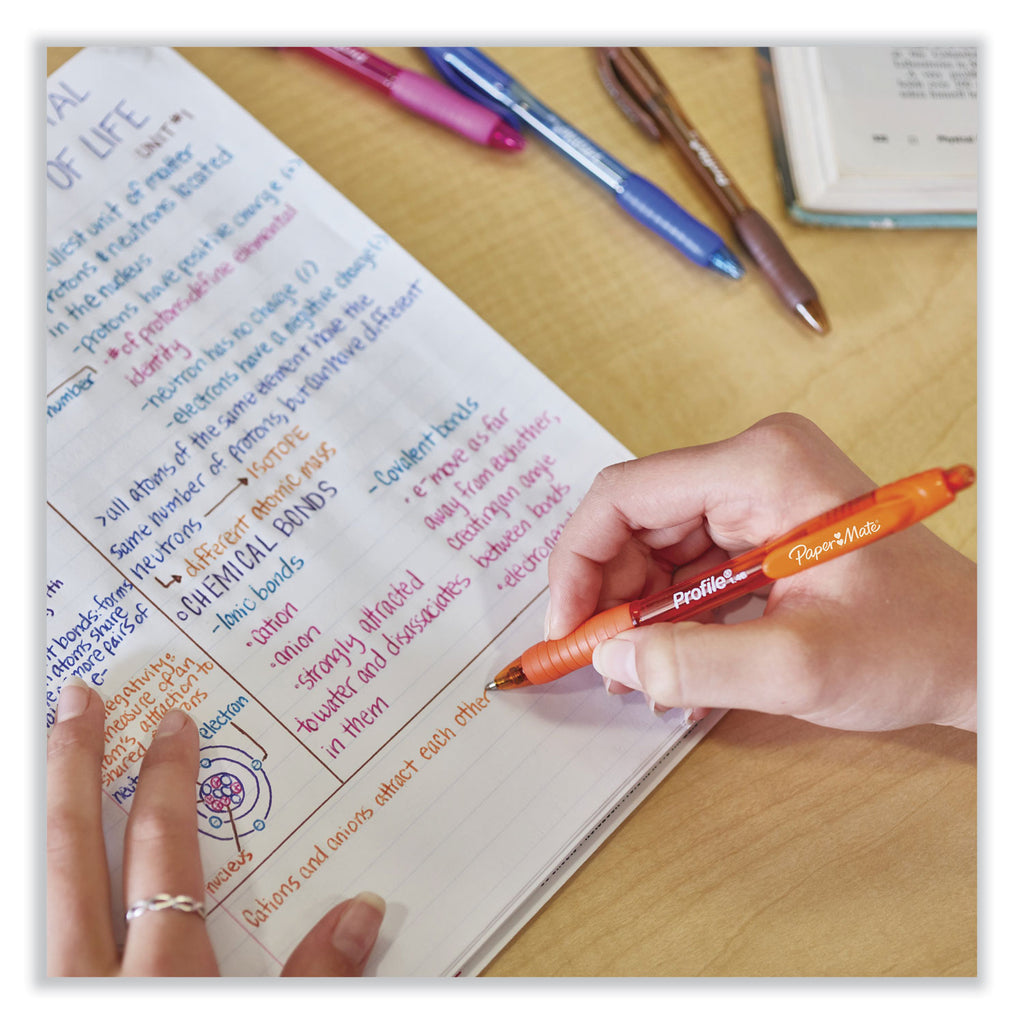 TAL
OF LIFE
UNIT #1
llest unit of matter
rotons & neutrons located
in the nucleus
-protons have positive charge (+)
·# of protons define elemental
identity
number
-neutron has no charge (1)
-electrons have a negative charge (-)
>all atoms of the same element have the
same number of protons, but can have different
neutrons → ISOTOPE
different atomic mass
CHEMICAL BONDS
-Ionic bonds
·cation
·anion
·strongly attracted
to water and disassociates
in them
-Covalent bonds
·e⁻ move as far
away from eachother,
creating an angle
between bonds
·electroneg
th
t bonds: forms
n atoms share
more pairs of
e-
egativity:
measure of an
om's attraction to
shared
electron
neut
nucleus
Cations and anions attract each other
Paper Mate®
Profile®
1.4B